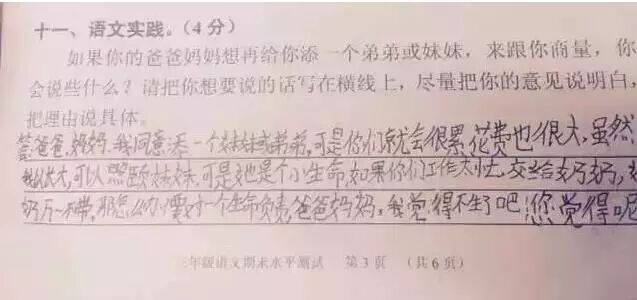 十一、语文实践。(4分)
如果你的爸爸妈妈想再给你添一个弟弟或妹妹，来跟你商量，你
会说些什么？请把你想要说的话写在横线上，尽量把你的意见说明白，
把理由说具体。
答:爸爸,妈妈,我同意添一个妹妹或弟弟,可是你们就会很累,花费也很大,虽然
我长大,可以照顾妹妹,可是她是个小生命,如果你们工作太忙,交给奶奶,
奶万一不带,那怎么办?要对一个生命负责,爸爸妈妈,我觉得不生了吧!您觉得呢
三年级语文期末水平测试 第3页 (共6页)